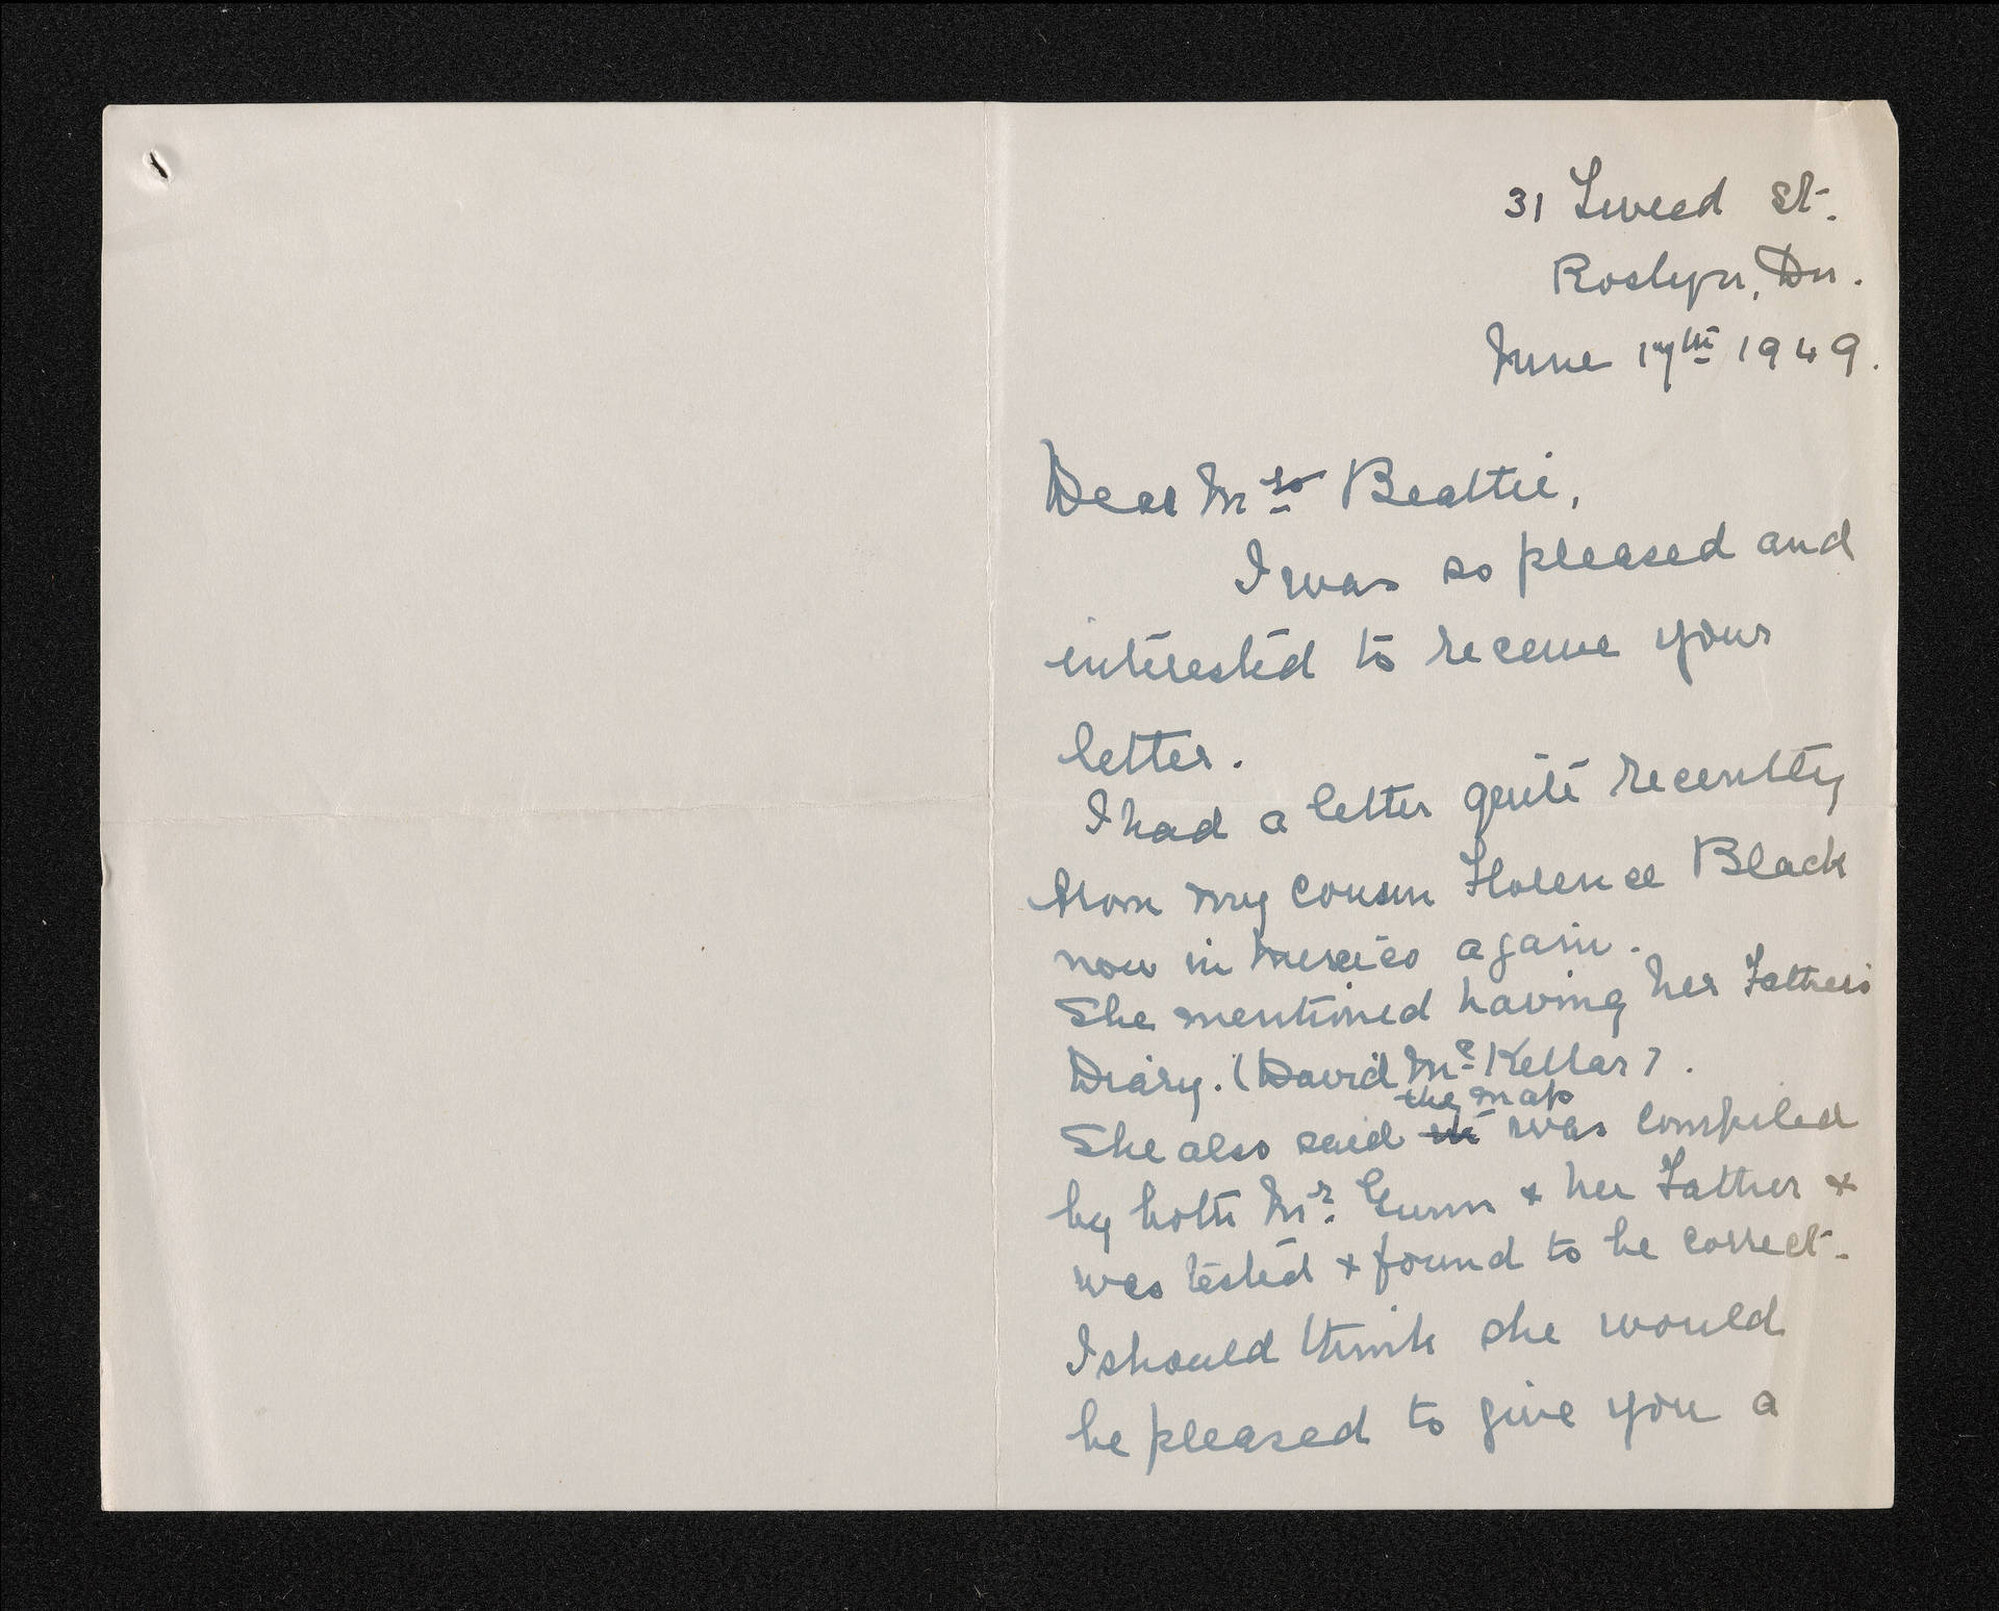 31 Tweed St.
Roslyn, Dn.
June 17th 1949.
Dear Mrs Beattie,
I was so pleased and
interested to receive your
letter.
I had a letter quite recently
from my cousin Florence Black
now in Mexico again.
She mentioned having her Father's
Diary. (David McKellar).
the map
She also said it was compiled
by both Mr. Gunn & her Father &
was tested & found to be correct.
I should think she would
be pleased to give you a